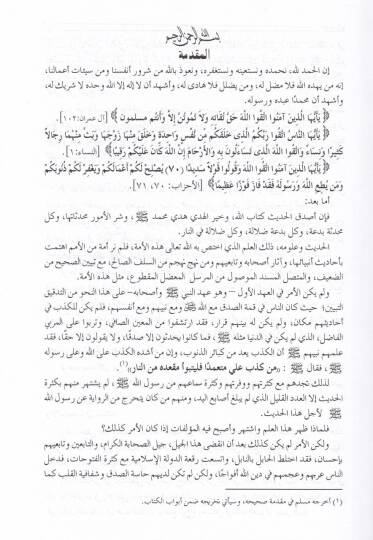 بسم الله الرحمن الرحيم
المقدمة
إن الحمد لله، نحمده ونستعينه ونستغفره، ونعوذ بالله من شرور أنفسنا ومن سيئات أعمالنا،
إنه من يهده الله فلا مضل له، ومن يضلل فلا هادى له، وأشهد أن لا إله إلا الله وحده لا شريك له،
وأشهد أن محمدًا عبده ورسوله.
﴿ يَأَيُّهَا الَّذِينَ آمَنُوا اتَّقُوا اللَّهَ حَقَّ تُقَاتِهِ وَلَا تَمُوتُنَّ إِلَّا وَأَنتُم مسلمون ﴾ [آل عمران: ١٠٢].
﴿ يَأَيُّهَا النَّاسُ اتَّقُوا رَبَّكُمُ الَّذِى خَلَقَكُم مِّن نَّفْسٍ وَاحِدَةٍ وَخَلَقَ مِنْهَا زَوْجَهَا وَبَثَّ مِنْهُمَا رِجَالًا
كَثِيرًا وَنِسَاءً وَاتَّقُوا اللَّهَ الَّذِى تَسَاءَلُونَ بِهِ وَالأَرْحَامَ إِنَّ اللَّهَ كَانَ عَلَيْكُمْ رَقِيبًا ﴾ [النساء: ١].
﴿ يَأَيُّهَا الَّذِينَ آمَنُوا اتَّقُوا اللَّهَ وَقُولُوا قَوْلًا سَدِيدًا (٧٠) يُصْلِحْ لَكُمْ أَعْمَالَكُمْ وَيَغْفِرْ لَكُمْ ذُنُوبَكُمْ
وَمَن يُطِعِ اللَّهَ وَرَسُولَهُ فَقَدْ فَازَ فَوْزًا عَظِيمًا ﴾ [الأحزاب: ٧٠، ٧١].
أما بعد:
فإن أصدق الحديث كتاب الله، وخير الهدي هدي محمد ﷺ، وشر الأمور محدثاتها، وكل
محدثة بدعة، وكل بدعة ضلالة، وكل ضلالة في النار.
الحديث وعلومه، ذلك العلم الذي اختص به الله تعالى هذه الأمة، فلم نر أمة من الأمم اهتمت
بأحاديث أنبيائها، وآثار أصحابه وتابعيهم ومن نهج نهجهم من السلف الصالح، مع تبيين الصحيح من
الضعيف، والمتصل المسند الموصول من المرسل المعضل المقطوع، مثل هذه الأمة.
ولم يكن الأمر في العهد الأول – وهو عهد النبي ﷺ وأصحابه– على هذا النحو من التدقيق
التبيين؛ حيث كان الناس في قمة الصدق مع الله ﷻ ومع نبيهم ومع أنفسهم، فلم يكن للكذب في
أحاديثهم مكان، ولم يكن له بينهم قرار، فقد ارتشفوا من المعين الصافي، وتربوا على المربي
الفاضل، الذي لم يكن في الدنيا مثله ﷺ، فما كانوا يحدثون إلا صدقًا، ولا يقولون إلا حقًا، فقد
علمهم نبيهم ﷺ أن الكذب يعد من كبائر الذنوب، وإن من أشده الكذب على الله وعلى رسوله
ﷺ، فقال ﷺ : «من كذب علي متعمدًا فليتبوأ مقعده من النار»(١).
لذلك تجدهم مع كثرتهم ووفرتهم وكثرة سماعهم من رسول الله ﷺ، لم يشتهر منهم بكثرة
الحديث إلا العدد القليل الذي لم يبلغ أصابع اليد، ومنهم من كان يتحرج من الرواية عن رسول الله
ﷺ لأجل هذا الحديث.
فلماذا ظهر هذا العلم واشتهر وأصبح فيه المؤلفات إذا كان الأمر كذلك؟
ولكن الأمر لم يكن كذلك بعد أن انقضى هذا الجيل، جيل الصحابة الكرام، والتابعين وتابعيهم
بإحسان، فقد اختلط الحابل بالنابل، واتسعت رقعة الدولة الإسلامية مع كثرة الفتوحات، فدخل
الناس عربهم وعجمهم في دين الله أفواجًا، ولكن لم تكن لديهم حاسة الصدق وشفافية القلب كما
(١) أخرجه مسلم في مقدمة صحيحه، وسيأتي تخريجه ضمن أبواب الكتاب.